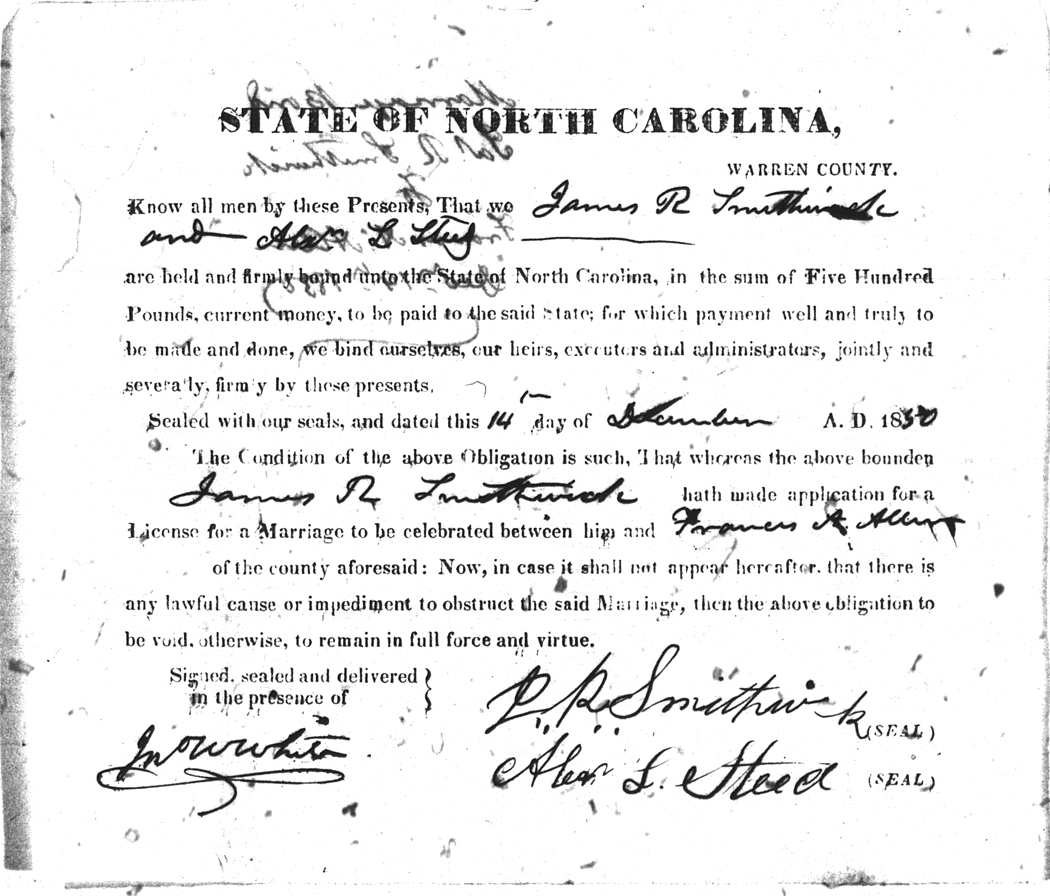 STATE OF NORTH CAROLINA,
WARREN COUNTY.
Know all men by these Presents, That we James R Smithwick
and Alexr L Steed
are held and firmly bound unto the State of North Carolina, in the sum of Five Hundred
Pounds, current money, to be paid to the said State; for which payment well and truly to
be made and done, we bind ourselves, our heirs, executors and administrators, jointly and
severally, firmly by these presents.
Sealed with our seals, and dated this 14 day of December A. D. 1850
The Condition of the above Obligation is such, That whereas the above bounden
James R Smithwick hath made application for a
License for a Marriage to be celebrated between him and Francis A
of the county aforesaid: Now, in case it shall not appear hereafter, that there is
any lawful cause or impediment to obstruct the said Marriage, then the above obligation to
be void, otherwise, to remain in full force and virtue.
Signed, sealed and delivered
in the presence of
R. Smithwick (SEAL)
Jno W White
Alexr L. Steed (SEAL)